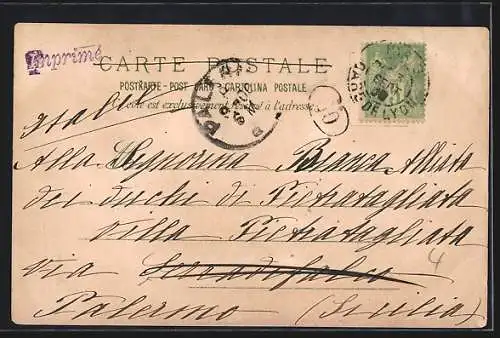 Imprimé
CARTE POSTALE
POSTKARTE - POST CARD - CARTOLINA POSTALE
Côté est exclusivement réservé à l'adresse
Italie
PALERMO
GARE DE LYON
Alla Signorina Bianca Alliata
dei duchi di Pietratagliata
villa Pietratagliata
via Serradifalco
Palermo (Sicilia)
4